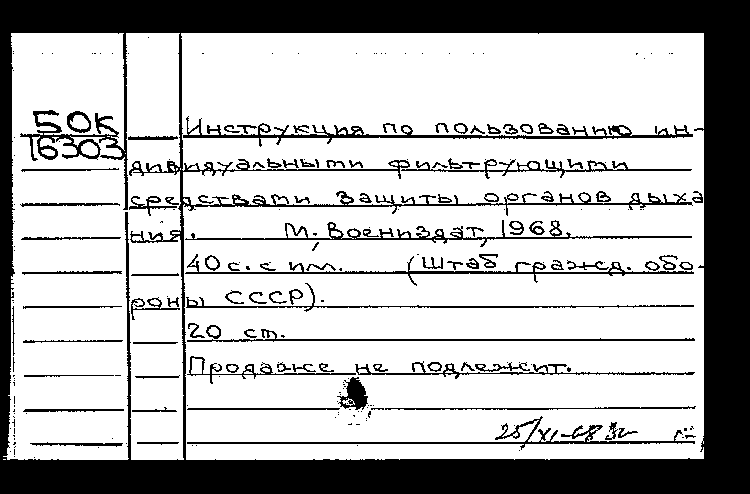 50К
16303
Инструкция по пользованию ин-
дивидуальными фильтрующими
средствами защиты органов дыха
ния. М., Воениздат, 1968.
40 с. с ил. (Штаб гражд. обо-
роны СССР).
20 ст.
Продаже не подлежит.
25/XI-68